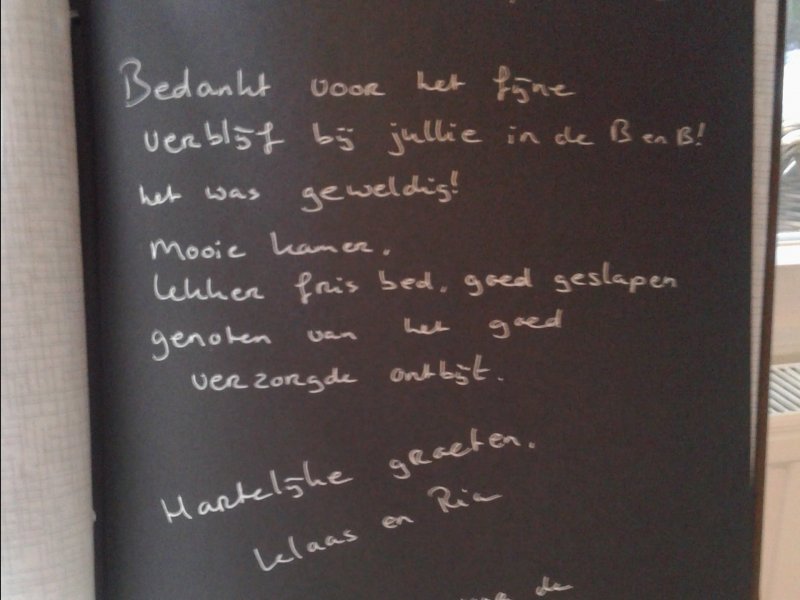 Bedankt voor het fijne
verblijf bij jullie in de B en B!
het was geweldig!
Mooie kamer.
lekker fris bed. goed geslapen
genoten van het goed
verzorgde ontbijt.
Hartelijke groeten.
Klaas en Ria
de